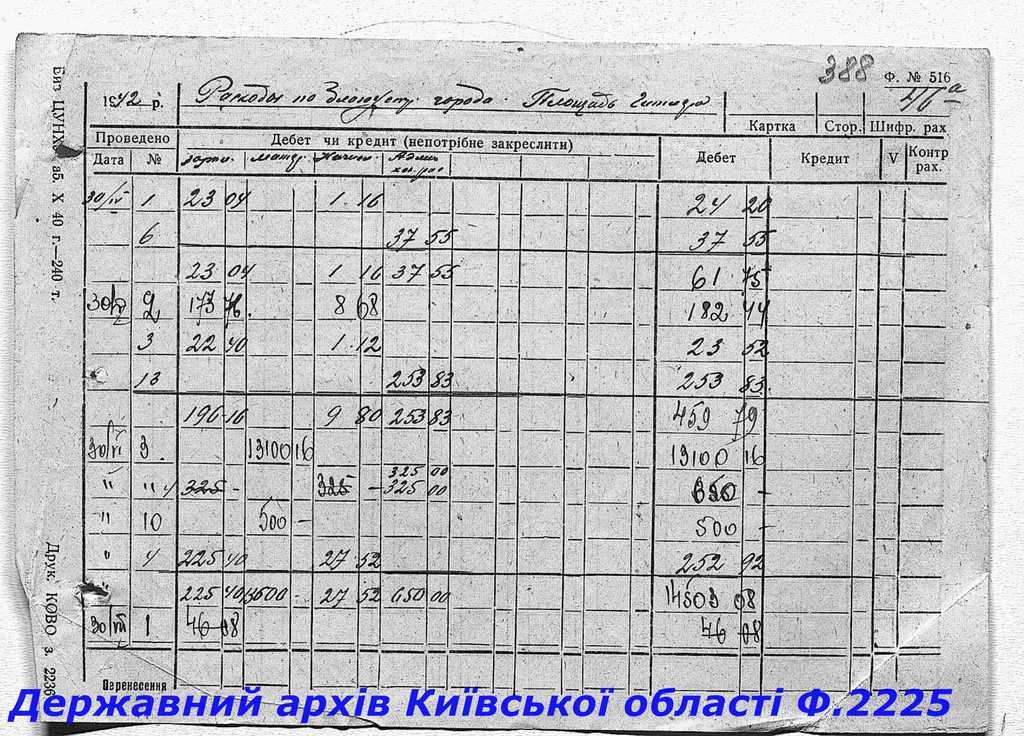 388
Ф. № 516
46а
1942 р.
Расходы по города. Площадь
Картка Стор. Шифр. рах
Проведено Дебет чи кредит (непотрібне закреслити) Дебет Кредит V Контр рах.
Дата № зарпл. матер. Начисл. Админ. хоз. рас
30/IV 1 23 04 1 16 24 20
6 37 55 37 55
23 04 1 16 37 55 61 75
30/V 2 173 76 8 68 182 44
3 22 40 1 12 23 52
13 253 83 253 83
196 16 9 80 253 83 459 79
30/VI 3 13100 16 13100 16
325 00
" " 4 325 - 325 - 325 00 650 -
" 10 500 - 500 -
" 4 225 40 27 52 252 92
225 40 27 52 650 00 14503 08
30/VII 1 46 08 46 08
Перенесення
Друк. КОВО з. 2236
Державний архів Київської області Ф.2225